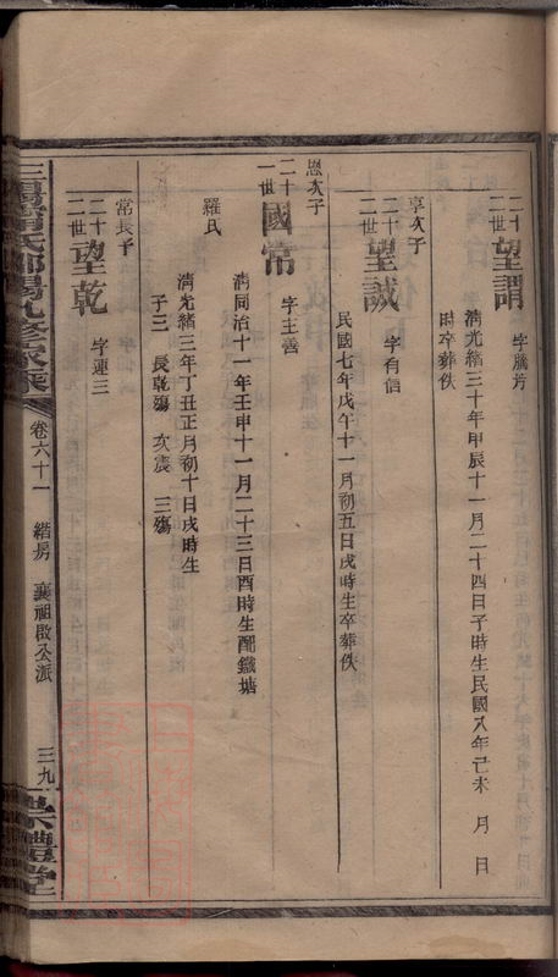 二十二世 望謂 字騰芳
清光緒三十年甲辰十一月二十四日子時生民國八年己未 月 日
時卒葬佚
享次子
二十二世 望誠 字有信
民國七年戊午十一月初五日戌時生卒葬佚
恩次子
二十一世 國常 字主善
清同治十一年壬申十一月二十三日酉時生配鐵塘
羅氏
清光緒三年丁丑正月初十日戌時生
子三 長乾殤 次震 三殤
常長子
二十二世 望乾 字運三
卷六十一 緒房 襄祖啟公派 三九